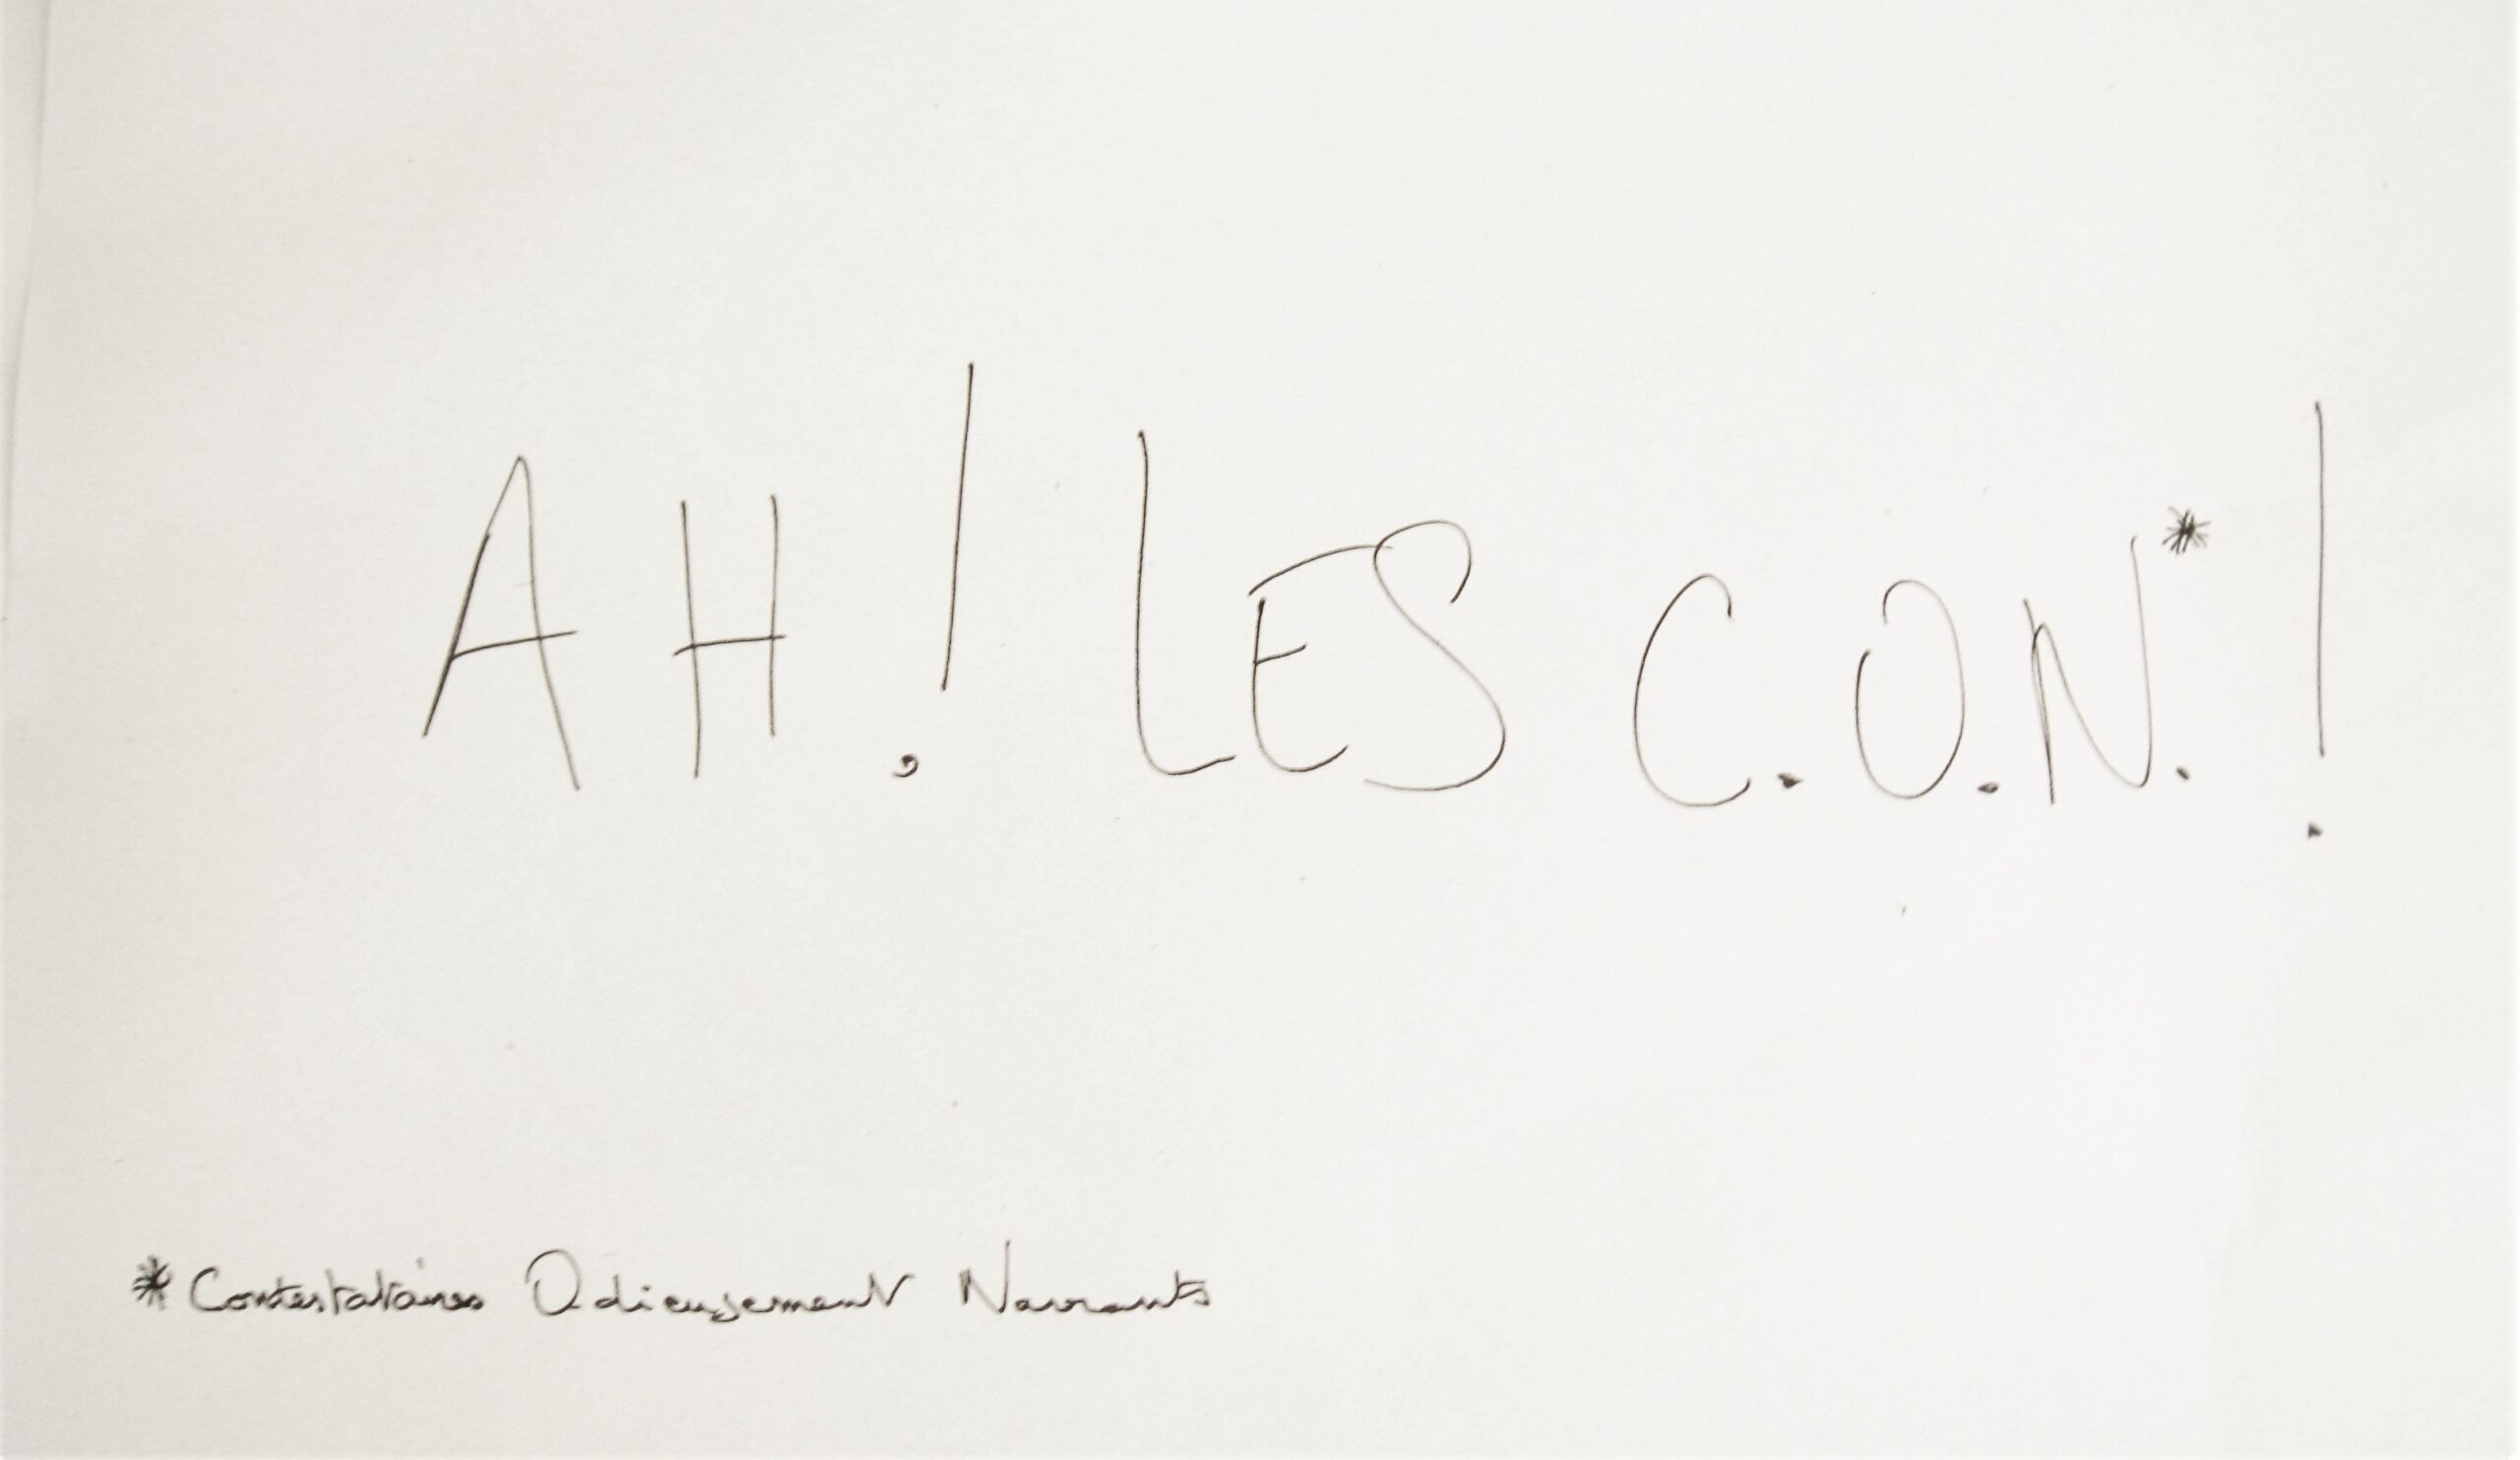 AH! LES C.O.N.*!
*Contestataires Odieusement Navrants